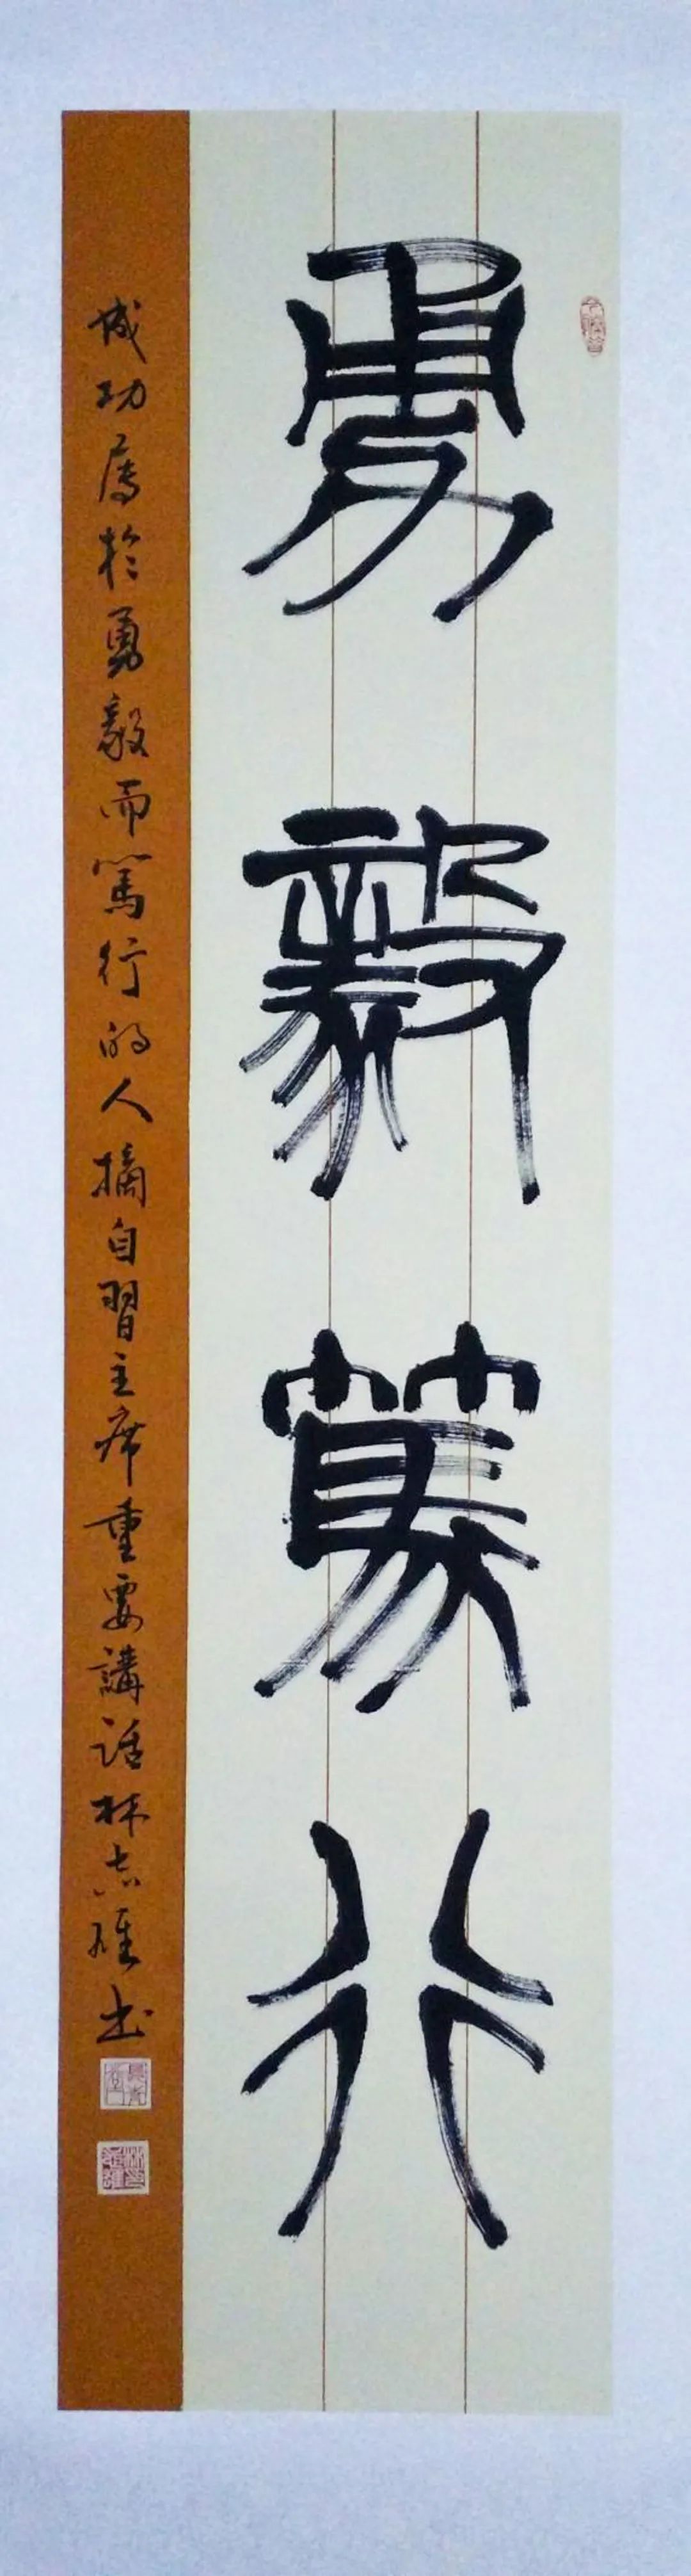 勇毅篤行
成功屬於勇毅而篤行的人摘自習主席重要講話林志雄书